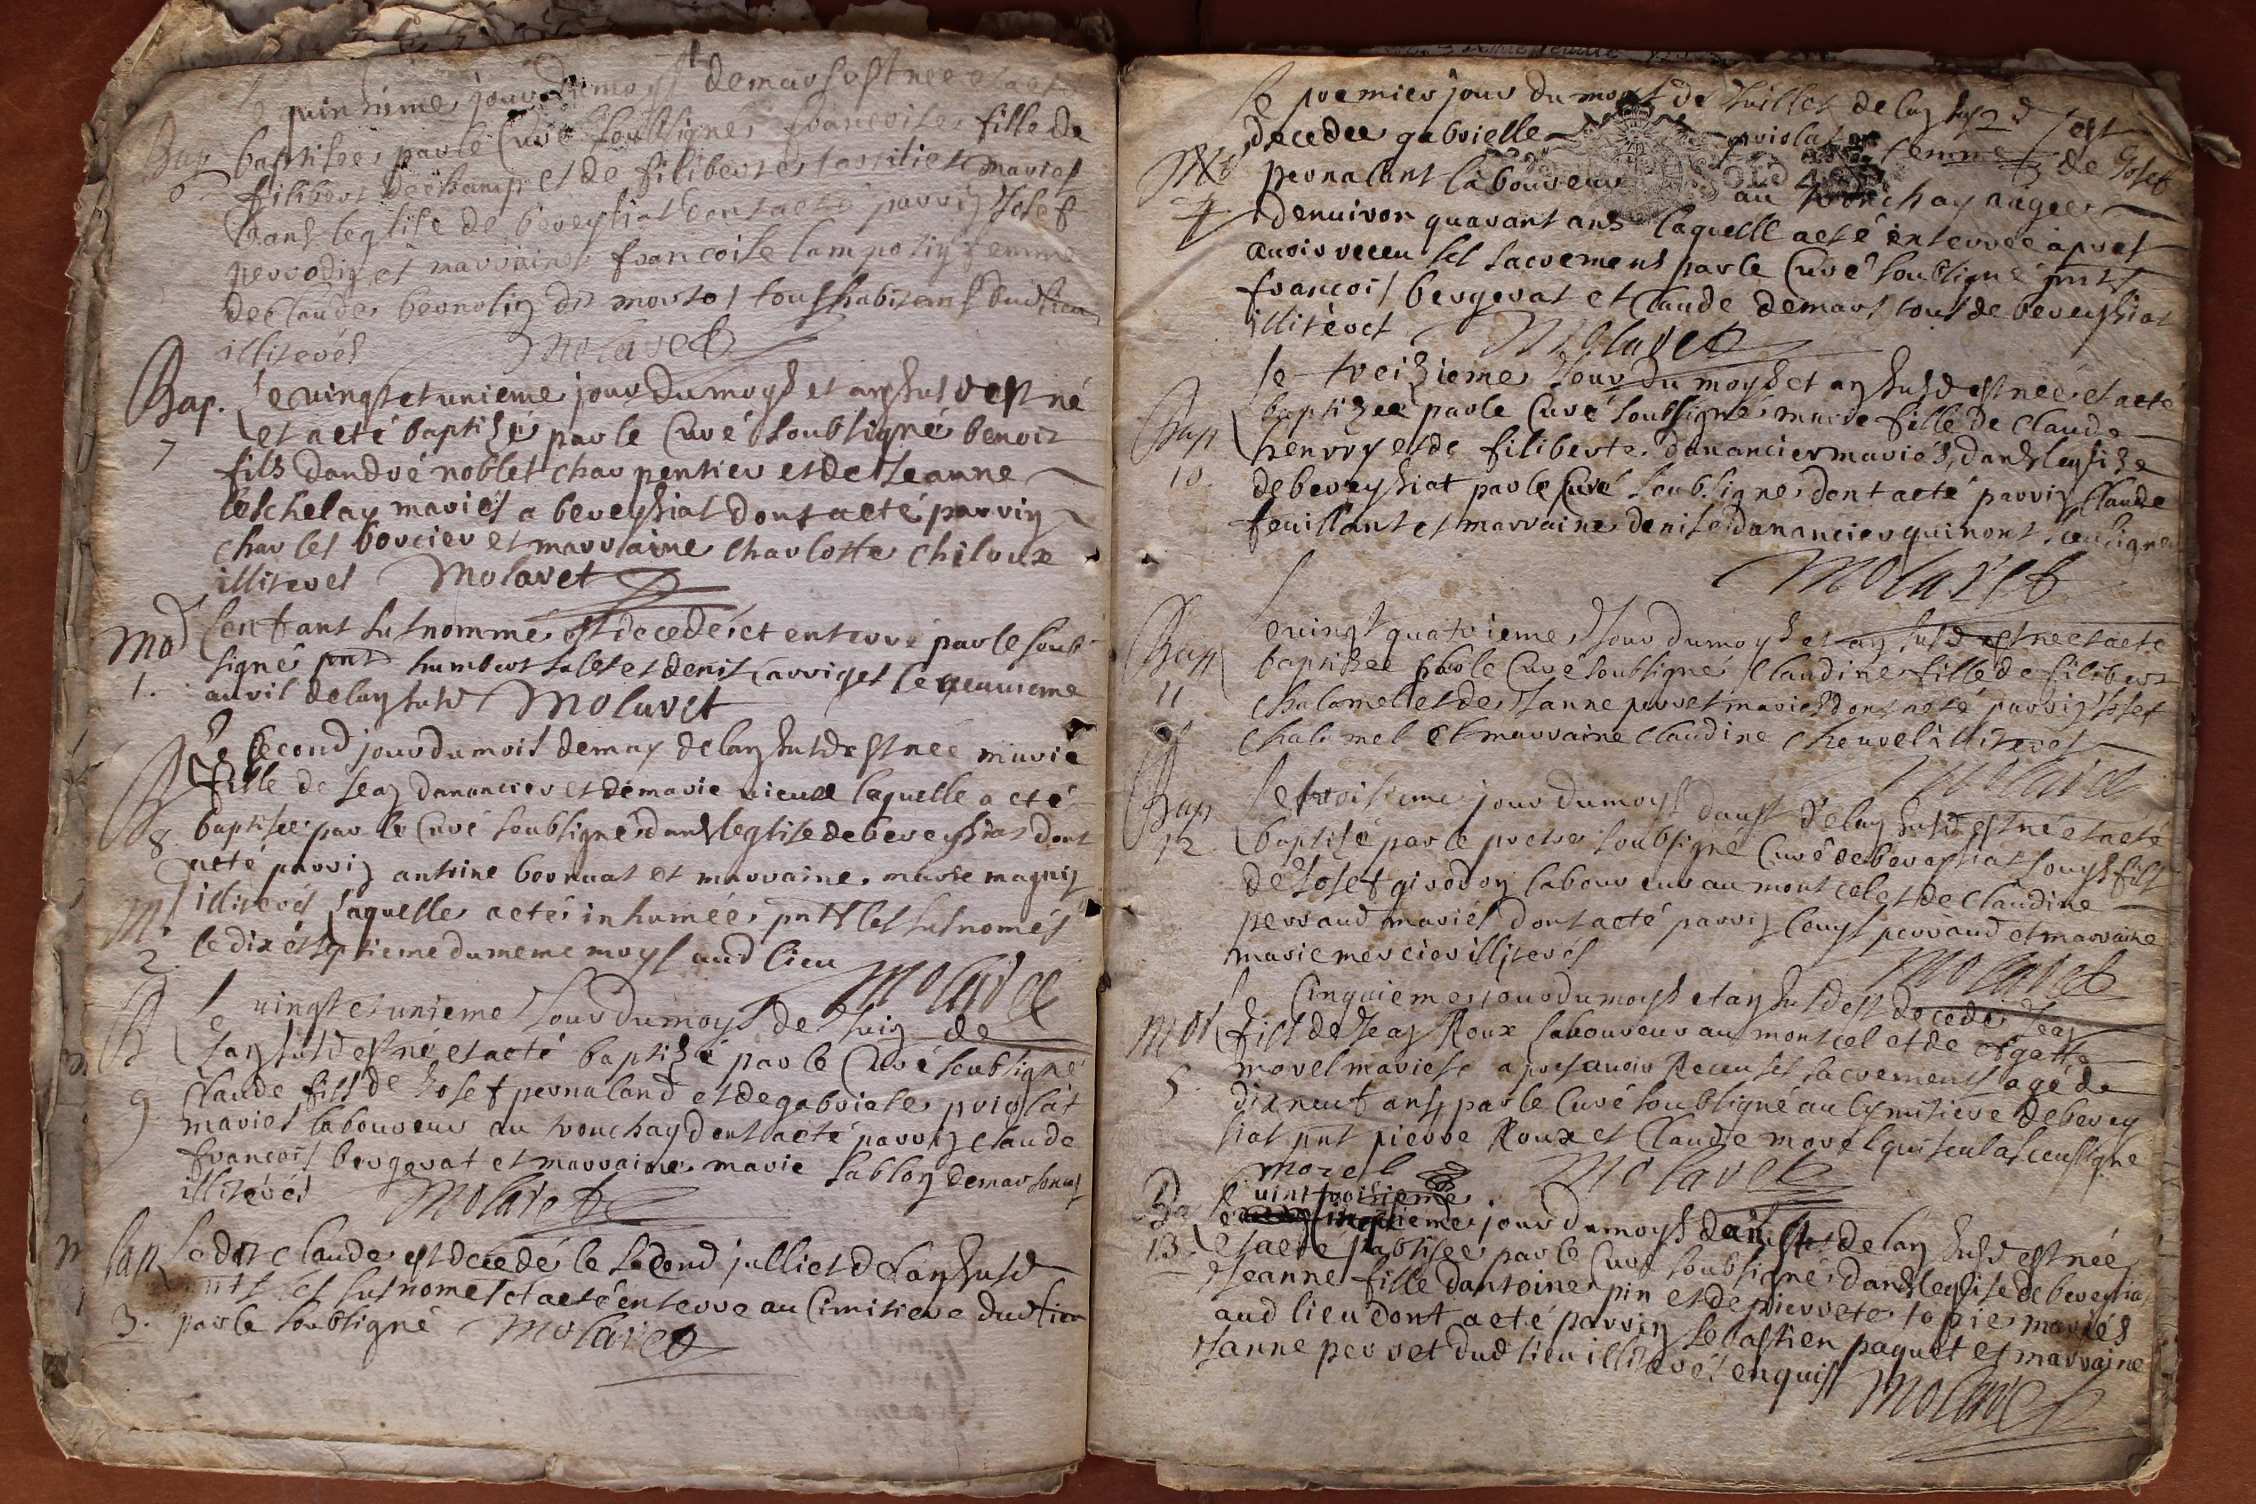 quinzieme jour du moys de mars est née et a eté
Bap baptisée par le Curé soubsigné francoise fille de
6 filibert dechamp et de filiberte mariés
dans leglise de beveyssiat dont a eté parrin Josef
perrodin et marraine francoise femme
de Claude bernolin dit tous habitans dud lieu
illiterés Molaret
Bap. Le vingt et unieme jour du moys et an susd est né
7 et a eté baptisé par le Curé soubsigné benoit
fils dandré noblet charpentier et de Jeanne
leschelay mariés a beveyssiat dont a eté parrin
charles borcier et marraine charlotte chiloux
illiterés Molaret
Mo lenfant susnommé est decedé et enterré par le soub
signé pnts humbert et denis le neuvieme
1. avril de lan susd Molaret
B Le second jour du mois de may de lan susd est née marie
fille de Jean danancier et de marie vieux laquelle a eté
8 baptisée par le Curé soubsigné dans leglise de beveyssiat dont
a eté parrin antoine bernuat et marraine marie magnin
M. illiterés laquelle a eté inhumée pnts les susnomés
2. le dix et septieme du meme moys aud lieu Molaret
Le vingt et unieme Jour du moys de Juin de
B lan susd est né et a eté baptisé par le Curé soubsigné
9 Claude fils de Josef pernaland et de gabriele priolat
mariés laboureur au tronchay dont a eté parrin Claude
francois bergerat et marraine marie sablon
illiterés Molaret
Ledit Claude est decedé le second julliet de lan susd
pnts les susnomés et a eté enterré au Cimitiere dud lieu
3. par le soubsigné Molaret
Le premier jour du moys de Juillet de lan susd est
decedée gabrielle priolat femme de Josef
Mo pernalant laboureur au tronchay augée
4 denviron quarant ans laquelle a eté enterrée apres
avoir receu ses sacremens par le Curé soubsigné pnts
francois bergerat et Claude demars tous de beveyssiat
illiterés Molaret
Le treizieme Jour du moys et an susd est née et a eté
Bap baptizée par le Curé soubsigné marie fille de Claude
10. henrry et de filiberte dananciermariés, dans leglise
de beveyssiat par le Curé soubsigné dont a eté parrin Claude
feuillant et marraine denise danancier qui nont sceu signer
Molaret
Le vingt quatrieme Jour du moys et an susd est née et a eté
Bap baptizée par le Curé soubsigné Claudine fille de filibert
11 Chalamel et de Janne perret mariés dont a eté parrin Josef
Chalamel et marraine Claudine chevrel illiterés
Molaret
Bap Le troisieme jour du moys daust de lan susd est né et a eté
12 baptisé par le pretre soubsigné Curé de beveyssiat Louys fils
de Josef girodon laboureur au montcel et de Claudine
perraud mariés dont a eté parrin Louys perraud et marraine
marie mercier illiterés Molaret
Le Cinquieme jour du moys et an susd est decedé Jean
mor fils de Jean Roux laboureur au montcel et de agatte
5. morel mariés apres avoir Receu ses sacremens agé de
dix neuf ans par le Curé soubsigné au Cymitiere de bevey
siat pnt pierre Roux et Claude morel qui seul a sceu signé
morel Molaret
vint troisieme
Ba Le jour du moys daust de lan susd est née
13 et a eté babtisée par le Curé soubsigné dans leglise de beveyssia
Jeanne fille dantoine pin et de pierrete topie mariés
aud lieu dont a eté parrin sebastien paquet et marraine
Janne perret dud lieu illiterés enquis Molaret